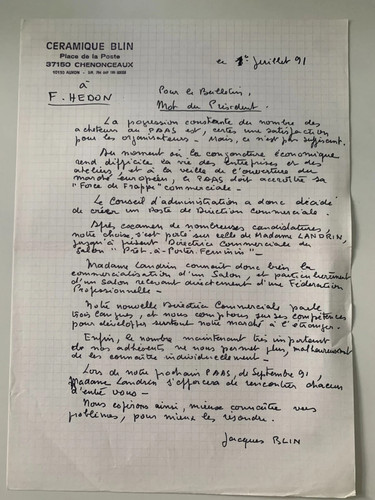 CERAMIQUE BLIN
Place de la Poste
37150 CHENONCEAUX
le 1er Juillet 91
à
F. HEDON
Pour le Bulletin,
Mot du Président.
La progression constante du nombre des
acheteurs au PAAS est, certes une satisfaction
pour les organisateurs. Mais, ce n'est pas suffisant.
Au moment où la conjoncture économique
rend difficile la vie des entreprises et des
ateliers, et à la veille de l'ouverture du
marché européen, le PAAS doit accroître sa
"Force de Frappe" commerciale -
Le Conseil d'administration a donc décidé
de créer un Poste de Direction Commerciale.
Après examen de nombreuses candidatures
notre choix s'est porté sur celle de Madame LANDRIN,
jusqu'à présent Directrice Commerciale du
Salon "Prêt-à-Porter Feminin" -
Madame Landrin connait donc bien la
commercialisation d'un Salon, et particulièrement
d'un salon relevant directement d'une Fédération
Professionnelle -
Notre nouvelle Directrice Commerciale parle
trois langues, et nous comptons sur ses compétences
pour développer surtout notre marché à l'étranger.
Enfin, le nombre maintenant très important
de nos adhérents ne nous permet plus, malheureusement
de les connaître individuellement -
Lors de notre prochain PAAS, de Septembre 91,
Madame Landrin s'efforcera de rencontrer chacun
d'entre vous -
Nous espérons ainsi, mieux connaître vos
problèmes, pour mieux les résoudre.
Jacques BLIN